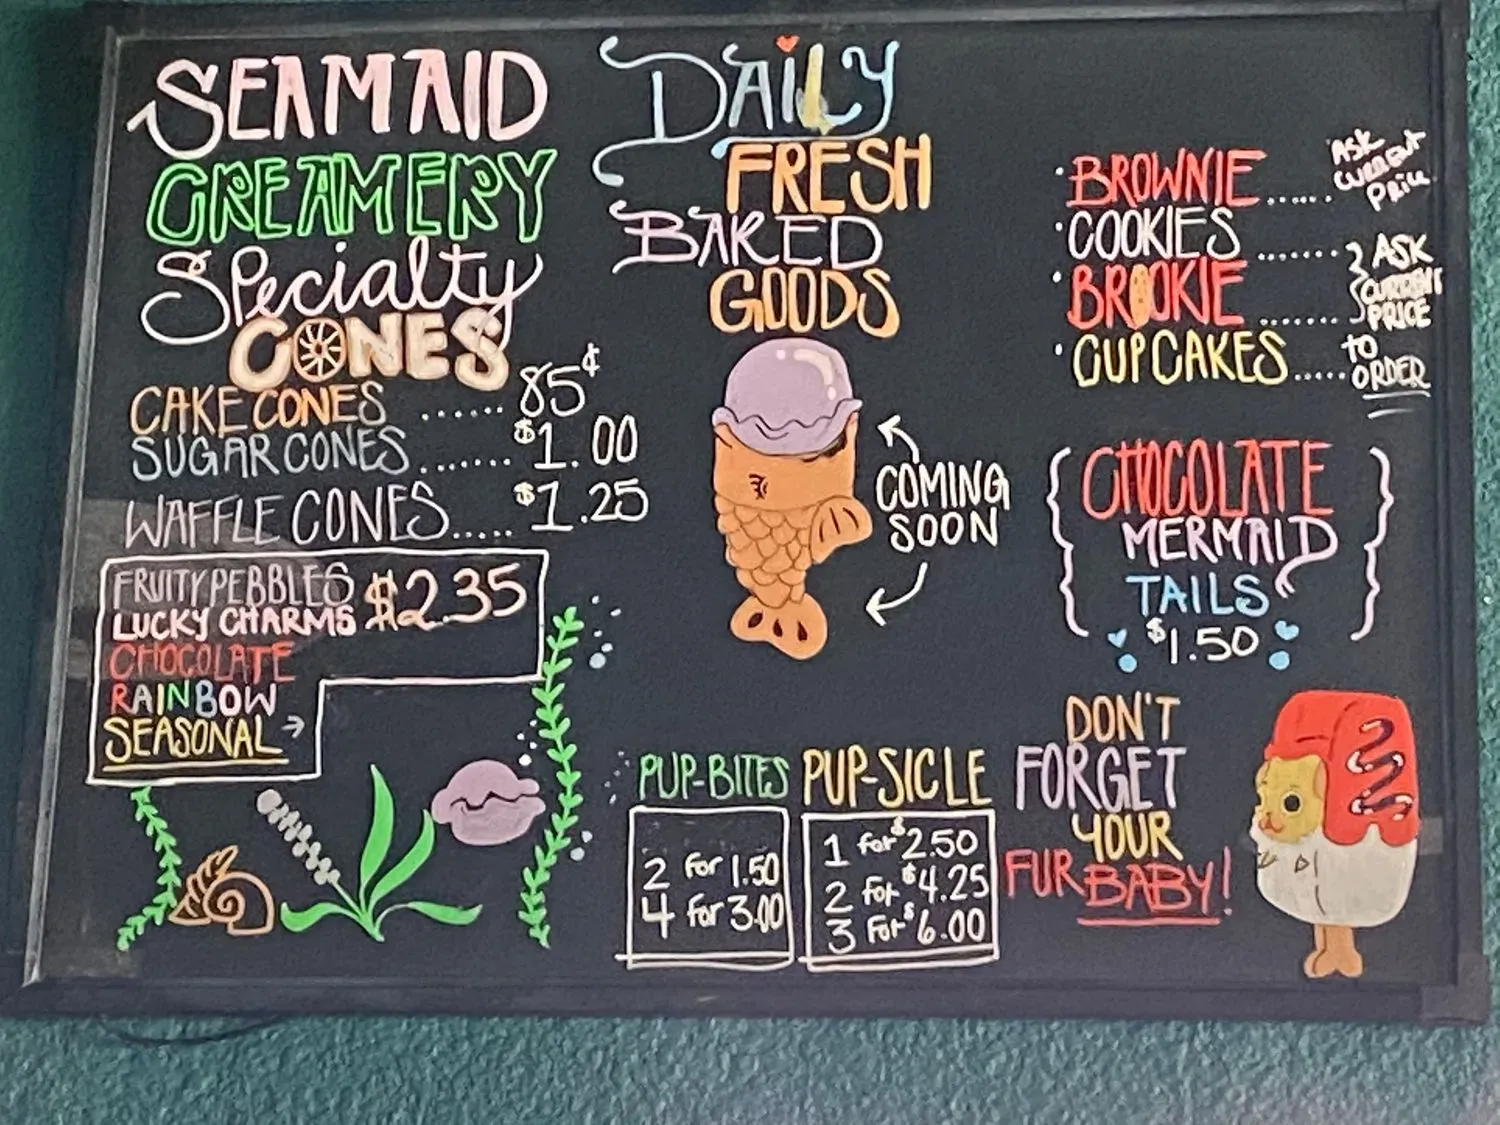 SEAMAID
CREAMERY
Specialty
CONES
CAKE CONES ...... 85¢
SUGAR CONES ....... $1.00
WAFFLE CONES..... $1.25
FRUITY PEBBLES $2.35
LUCKY CHARMS
CHOCOLATE
RAINBOW
SEASONAL →
DAiLY
FRESH
BAKED
GOODS
COMING
SOON
• BROWNIE ...... ASK
CURRENT
PRICE
• COOKIES ....... } ASK
• BROOKIE ....... CURRENT
PRICE
• CUPCAKES ..... to
ORDER
{ CHOCOLATE }
MERMAID
TAILS
$1.50
PUP-BITES
2 for 1.50
4 for 3.00
PUP-SICLE
1 for $2.50
2 for $4.25
3 for $6.00
DON'T
FORGET
YOUR
FUR BABY!